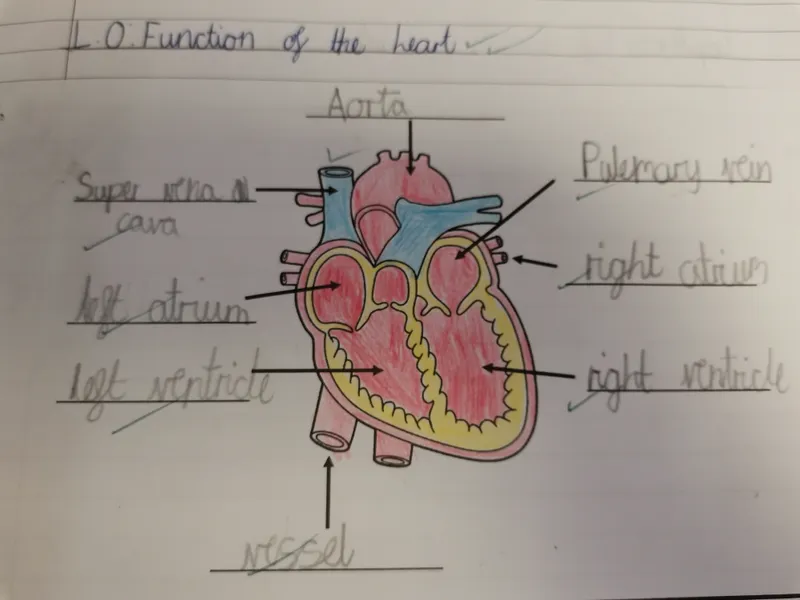 L.O. Function of the heart
Aorta
Super vena
cava
Pulemary vein
left atrium
right atrium
left ventricle
right ventricle
vessel